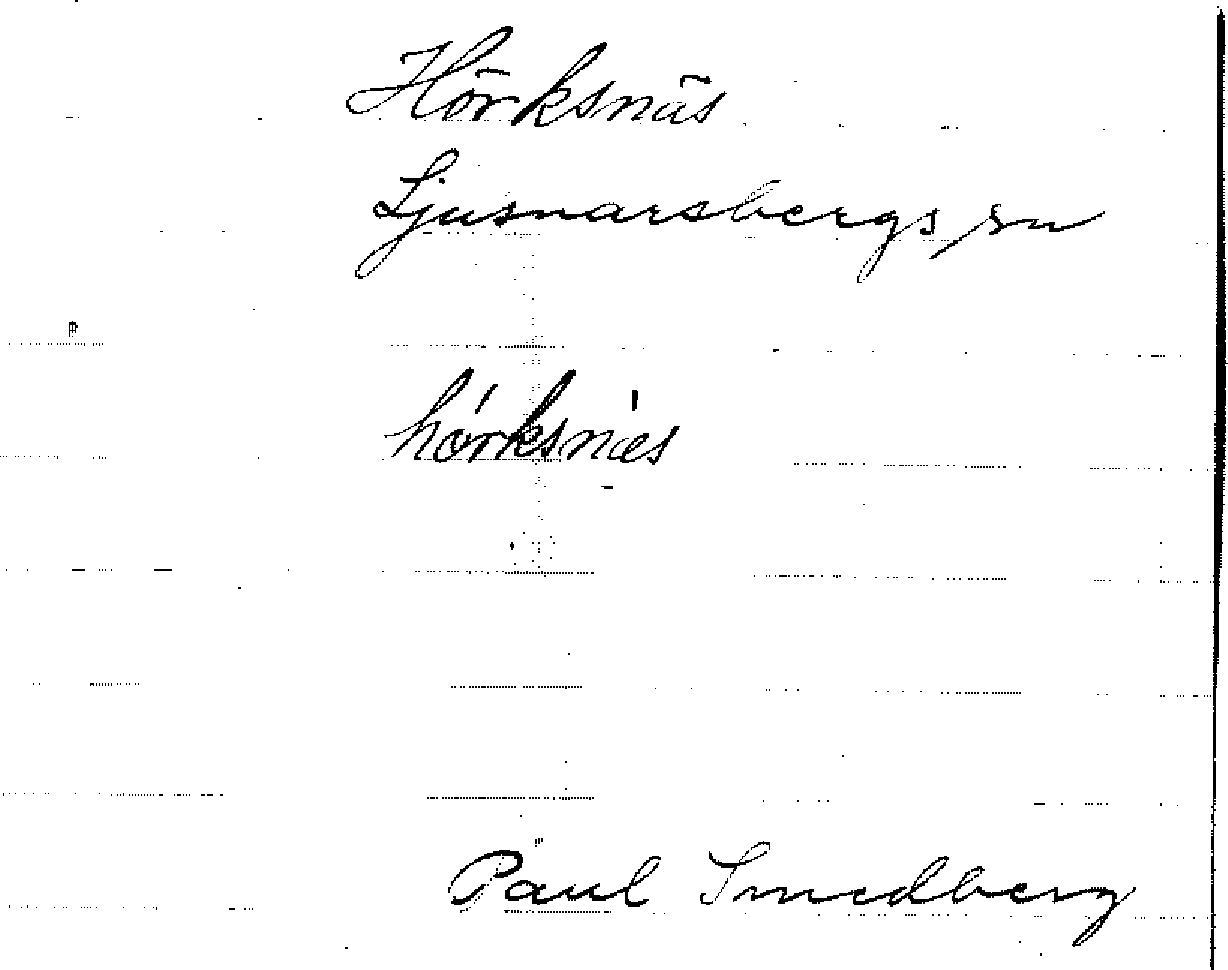 Hörksnäs
Ljusnarsbergs sn
hó̀rksnæ̀s
Paul Smedberg